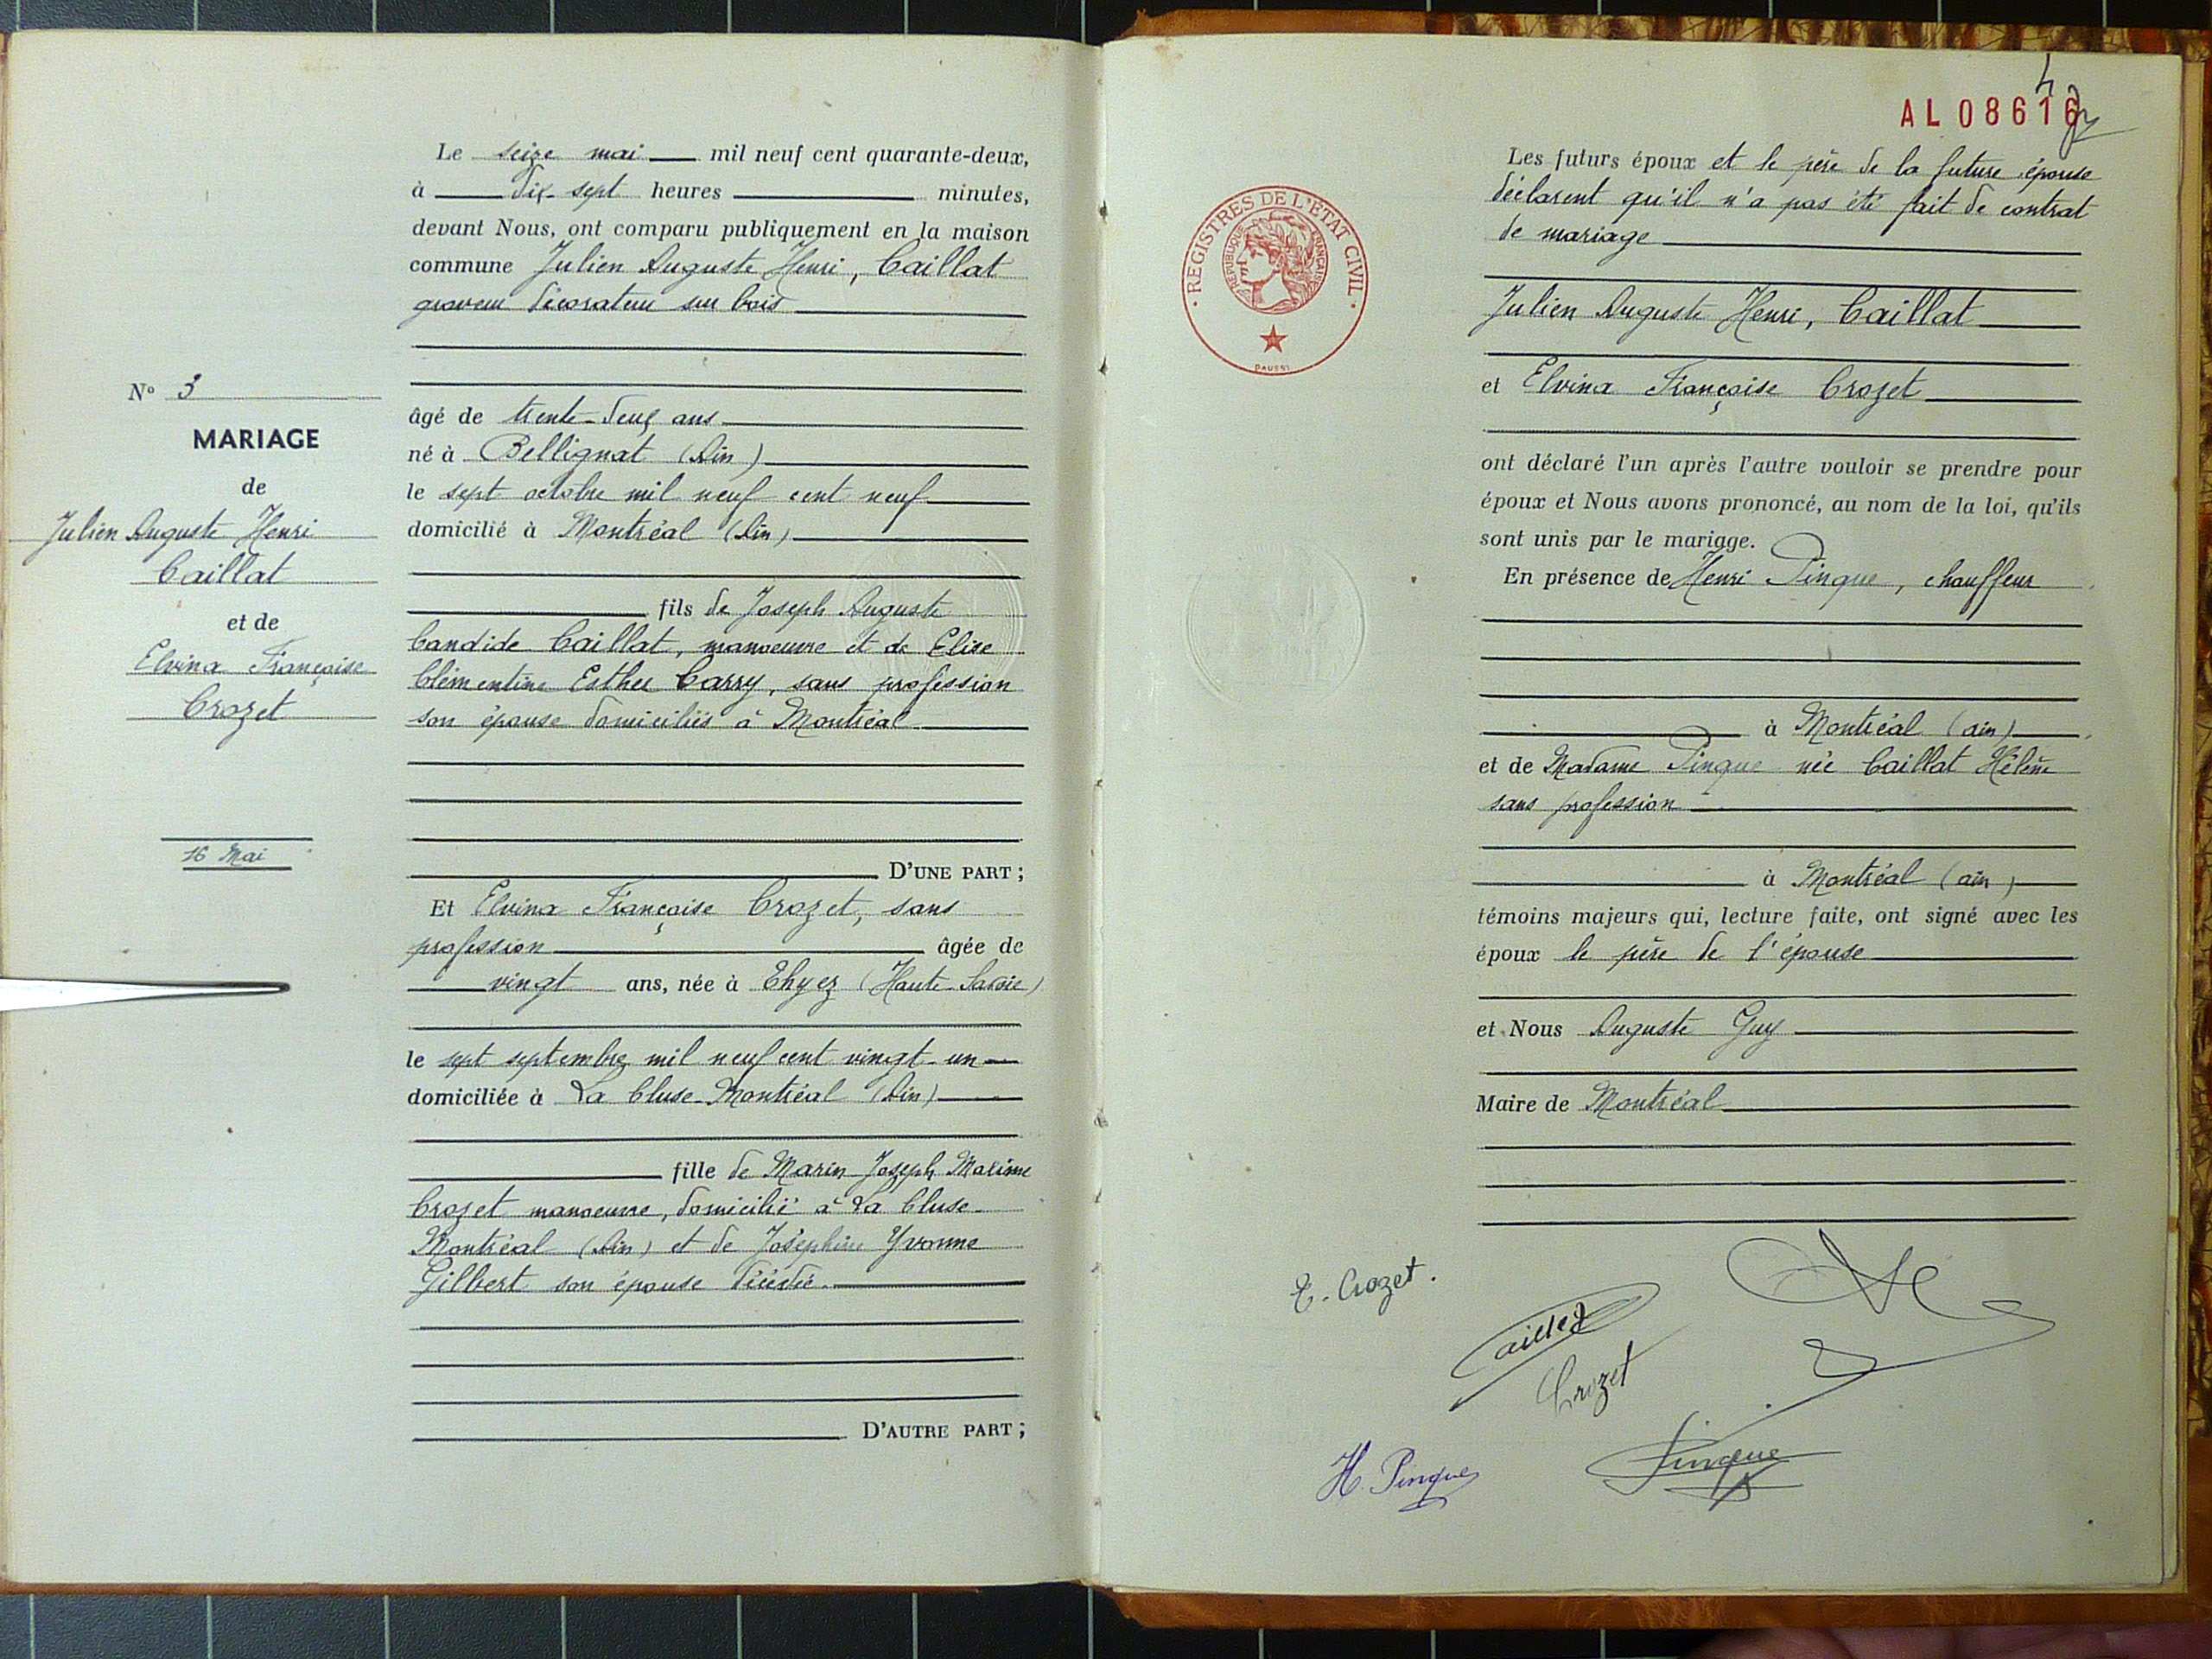 Le seize mai mil neuf cent quarante-deux,
à dix-sept heures minutes,
devant Nous, ont comparu publiquement en la maison
commune Julien Auguste Henri, Caillat
graveur décorateur sur bois
âgé de trente-deux ans
né à Bellignat (Ain)
le sept octobre mil neuf cent neuf
domicilié à Montréal (Ain)
fils de Joseph Auguste
Candide Caillat, manoeuvre et de Elise
Clémentine Esther Carry, sans profession
son épouse domiciliés à Montréal
D'UNE PART ;
Et Elvina Françoise Crozet, sans
profession âgée de
vingt ans, née à Thyez (Haute-Savoie)
le sept septembre mil neuf cent vingt-un
domiciliée à La Cluse-Montréal (Ain)
fille de Marin Joseph Maxime
Crozet manoeuvre, domicilié à La Cluse-
Montréal (Ain) et de Joséphine Yvonne
Gilbert son épouse décédée.
D'AUTRE PART ;
N° 3
MARIAGE
de
Julien Auguste Henri
Caillat
et de
Elvina Françoise
Crozet
16 Mai
4
AL 08616
REGISTRES DE L'ÉTAT CIVIL
RÉPUBLIQUE FRANÇAISE
DAUSSI
Les futurs époux et le père de la future épouse
déclarent qu'il n'a pas été fait de contrat
de mariage
Julien Auguste Henri, Caillat
et Elvina Françoise Crozet
ont déclaré l'un après l'autre vouloir se prendre pour
époux et Nous avons prononcé, au nom de la loi, qu'ils
sont unis par le mariage.
En présence de Henri Pinque, chauffeur
à Montréal (ain)
et de Madame Pinque née Caillat Hélène
sans profession
à Montréal (ain)
témoins majeurs qui, lecture faite, ont signé avec les
époux le père de l'épouse
et Nous Auguste Guy
Maire de Montréal
E. Crozet.
Caillat
Crozet
H. Pinque
Pinque